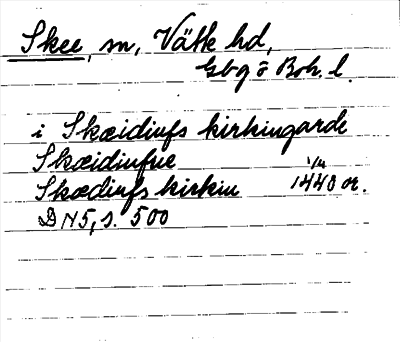 Skee, sn, Vätte hd,
Gbg o Boh. l.
i Skæidiufs kirkiugarde
Skæidiufue
Skædiufs kirkiu 1/4 1440 or.
DN5, s. 500